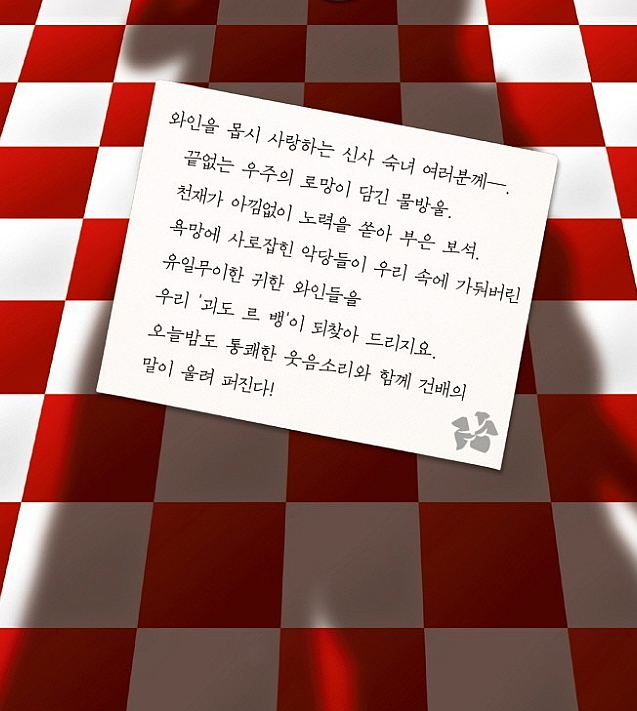 와인을 몹시 사랑하는 신사 숙녀 여러분께—.
끝없는 우주의 로망이 담긴 물방울.
천재가 아낌없이 노력을 쏟아 부은 보석.
욕망에 사로잡힌 악당들이 우리 속에 가둬버린
유일무이한 귀한 와인들을
우리 '괴도 르 뱅'이 되찾아 드리지요.
오늘밤도 통쾌한 웃음소리와 함께 건배의
말이 울려 퍼진다!